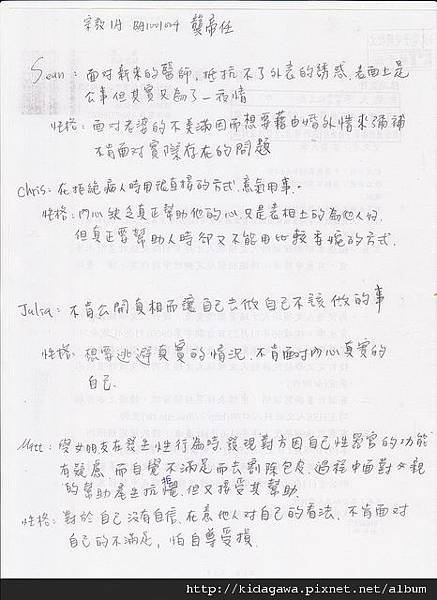 宗教1A B B1001024 龔帝任
Sean：面对新來的醫師，抵抗不了外表的誘惑，表面上是
公事但其实又為了一夜情
性格：面对老婆的不美滿因而想要藉由婚外情來彌補
不肯面对實際存在的問題
Chris：在拒絕病人時用很直接的方式，意氣用事。
性格：內心缺乏真正幫助他的心，只是表相上的為他人好，
但真正要幫助人時卻又不能用比較委婉的方式.
Julia：不肯公開真相而讓自己去做自己不該做的事
性格：想要逃避真實的情況，不肯面对內心真實的
自己.
Matt：與女朋友在發生性行為時，發現對方因自己性器官的功能
有疑慮，而自覺不滿足而去割除包皮，過程中面對父親
的幫助產生抗拒，但又接受其幫助.
性格：對於自己沒有自信，在意他人对自己的看法，不肯面对
自己的不滿足，怕自尊受損.
http://kidagawa.pixnet.net/album